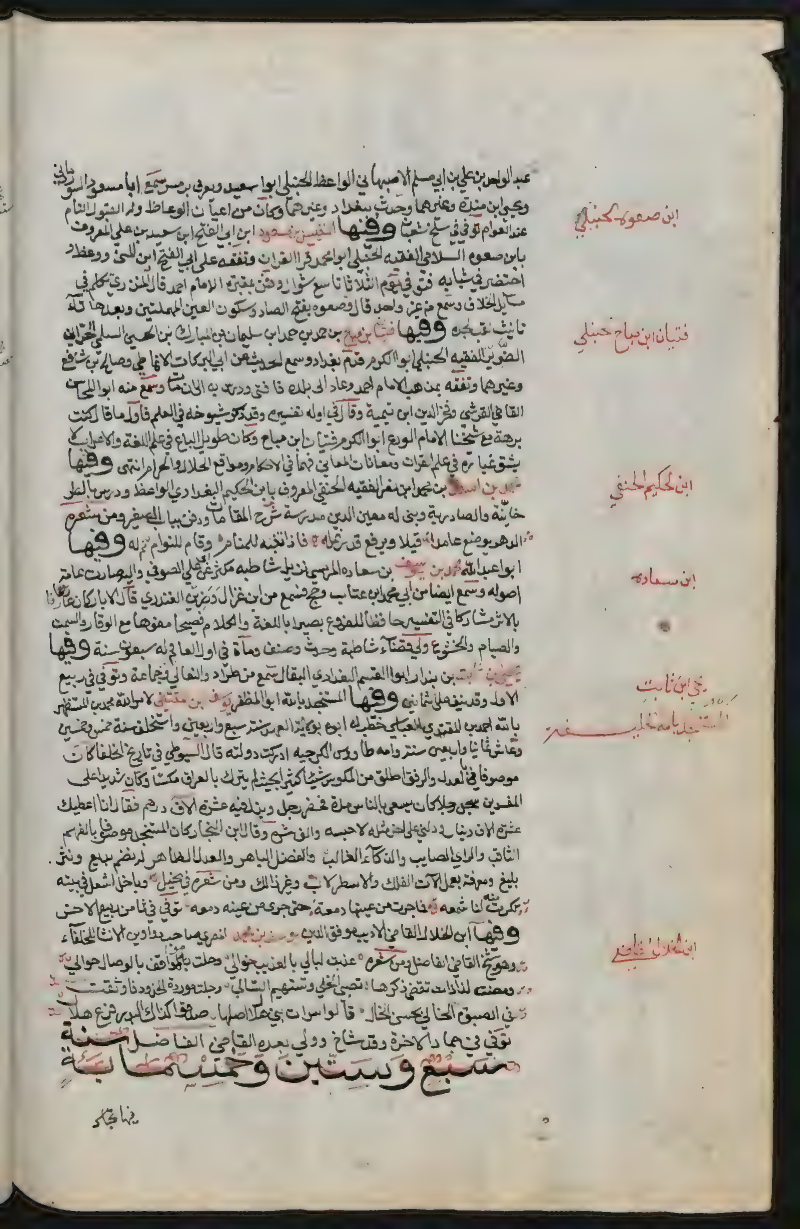 عبد الواحد بن علي بن ابي مسلم الاصبهاني الواعظ الحنبلي ابوا سعيد ويعرف سمع ابا مسعود السوذرجاني
ويحيى ابن مندة وغيرهما وحدث ببغداد وغيرهما وكان من اعيان الوعاظ وله القبول التام
عند العوام توفي في سلخ شعبان وفيها النفيس بن مسعود ابن ابي الفتح ابن سعيد بن علي المعروف
بابن صعوه السلامي الفقيه الحنبلي ابو محمد قرا القران وتفقه على ابي الفتح ابن المني ووعظ
احتضر في شبابه فتوفي يوم الثلاثا تاسع شوال ودفن بمقبرة الامام احمد قال المنذري تكلم في
مسايل الخلاف وسمع من غير واحد قال وصعوه بفتح الصاد وسكون العين المهملتين وبعدها تاء
تانيث لقب لجده وفيها فتيان بن مياح بن حمد بن حمد ابن سليمان بن المبارك بن الحسين السلمي الحراني
الضرير الفقيه الحنبلي ابوا الكرم قدم بغداد وسمع الحديث من ابي البركات الانماطي وصالح بن شافع
وغيرهما وتفقه بمذهب الامام احمد وعاد الى بلده فافتى ودرس به الى ان مات وسمع منه ابوا المحاسن
القاضي القرشي وفخر الدين ابن تيمية وقال في اوله تفسيره وقد ذكر شيوخه في العلم فاوله ما قال كنت
برهة مع شيخنا الامام الورع ابوا الكرم فتيان ابن مياح وكان طويل الباع في علم اللغة والاعراب لا
يشق غباره في علم القران ومعانات المعاني فهما في الاحكام ومواقع الحلال والحرام انتهى وفيها
محمد بن اسعد بن محمد ابن نصر الفقيه الحنفي المعروف بابن الحكيم البغدادي الواعظ ودرس بالطر
خانية والصادرية وبنى له معين الدين مدرسة شرح المقامات ودفن بباب الصغير ومن شعره
الدهر يوضع عامدا فيلا ويرفع قدر نمله فاذا تنبه للمنام وقام للنوام نم له وفيها
ابو عبد الله محمد بن يوسف بن سعاده المرسي نزيل شاطبه مكثر عن علي الصوفي واليه صارت عامة
اصوله وسمع ايضا من ابي محمد ابن عتاب وحج فسمع من ابن غزال ورزين العبدري قال الابار كان عارفا
بالاثر مشاركا في التفسير حافظا للفروع بصيرا باللغة والكلام فصيحا مفوها مع الوقار والسمت
والصيام والخشوع ولي قضاء شاطبة وحدث وصنف ومات في اول العام له سبعون سنة وفيها
يحيى بن ثابت بن بندار ابوا القسم البغدادي البقال سمع من طراد والنعالي وجماعة وتوفي في ربيع
الاول وقد نيف على الثمانين وفيها المستنجد بالله ابوا المظفر يوسف بن مقتفي لامر الله محمد بن المستظهر
بالله احمد بن المقتدي العباسي خطب له ابوه بولاية العهد سنة سبع واربعين واستخلف سنة خمس وخمسين
وعاش ثمانيا واربعين سنة وامه طاووس الكرجيه ادركت دولته قال السيوطي في تاريخ الخلفا كان
موصوفا بالعدل والرفق اطلق من المكوس شيا كثيرا بحيث لم يترك بالعراق مكسا وكان شديدا على
المفسدين سجن رجلا كان يسعى بالناس مدة فحضر رجل وبذل فيه عشرة الاف درهم فقال انا اعطيك
عشرة الاف دينار ودلني على اخر مثله لاحبسه واكف شره وقال ابن النجار كان المستنجد موصوفا بالفهم
الثاقب والراي الصايب والذكاء الغالب والفضل الباهر والعدل الظاهر له نظم بديع ونثر
بليغ ومعرفة بعمل الآت الفلك والاسطرلاب وغير ذالك ومن شعره في بخيل وباخل اشعل في بيته
تكرمة منه لنا شمعه فما جرت من عينها دمعة حتى جرى من عينه دمعه توفي في ثامن ربيع الاخر
وفيها ابن الخلال القاضي الاديب موفق الدين يوسف بن محمد المصري صاحب دواوين الانشا للخلفاء
وهو شيخ القاضي الفاضل ومن شعره عذبت ليالي بالعذيب خوالي وحلت مواقف بالوصال حوالي
ومضت لذاذات تقضى ذكرها تصبي الخلي وتستهيم السالي وجلت موردة الخدود فاوثقت
في الصبوة الخالي بحسن الخال قالوا سراة بني هلال اصلها صدقوا كذاك البدر فرع هلال
توفي في جمادى الاخرة وقد شاخ وولي بعده القاضي الفاضل سنة
سبع وستين وخمسماية
فيها تجاسر
ابن صعوه الحنبلي
فتيان ابن مياح حنبلي
ابن الحكيم الحنفي
ابن سعاده
يحيى ابن ثابت
المستنجد بالله خليفة
ابن الخلال القاضي